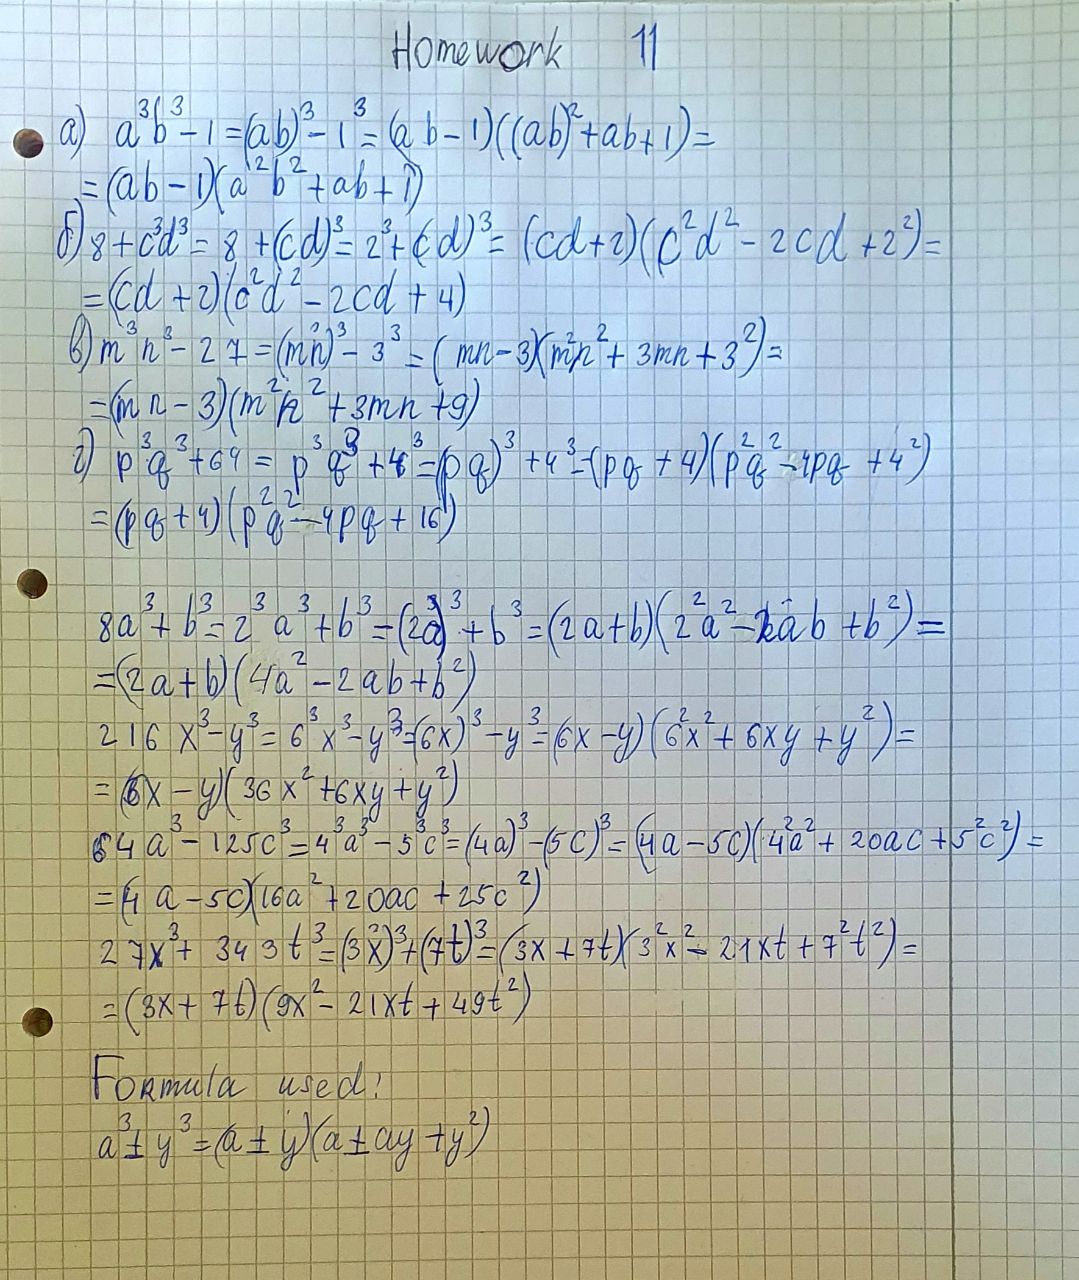 Homework 11
а) a³b³-1=(ab)³-1³=(ab-1)((ab)²+ab+1)=
=(ab-1)(a²b²+ab+1)
б) 8+c³d³=8+(cd)³=2³+(cd)³=(cd+2)(c²d²-2cd+2²)=
=(cd+2)(c²d²-2cd+4)
в) m³n³-27=(mn)³-3³=(mn-3)(m²n²+3mn+3²)=
=(mn-3)(m²n²+3mn+9)
г) p³q³+64=p³q³+4³=(pq)³+4³=(pq+4)(p²q²-4pq+4²)
=(pq+4)(p²q²-4pq+16)
8a³+b³=2³a³+b³=(2a)³+b³=(2a+b)(2²a²-2ab+b²)=
=(2a+b)(4a²-2ab+b²)
216x³-y³=6³x³-y³=(6x)³-y³=(6x-y)(6²x²+6xy+y²)=
=(6x-y)(36x²+6xy+y²)
64a³-125c³=4³a³-5³c³=(4a)³-(5c)³=(4a-5c)(4²a²+20ac+5²c²)=
=(4a-5c)(16a²+20ac+25c²)
27x³+343t³=(3x)³+(7t)³=(3x+7t)(3²x²-21xt+7²t²)=
=(3x+7t)(9x²-21xt+49t²)
Formula used:
a³±y³=(a±y)(a±ay+y²)